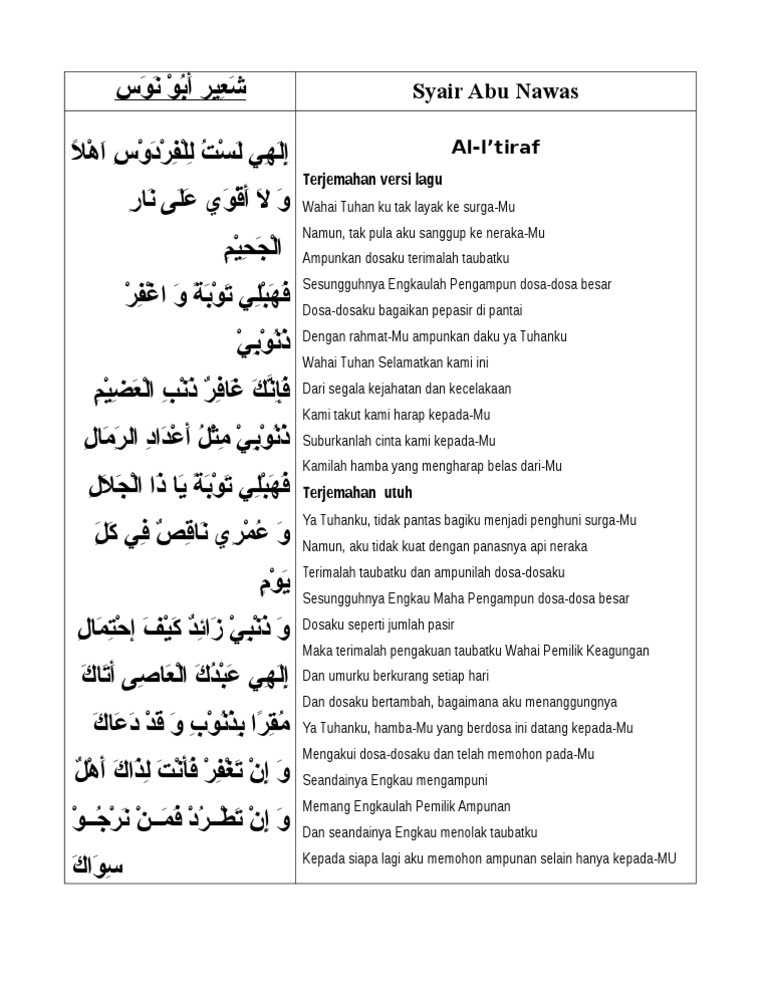 شَعِيرِ أَبُوْ نَوَسِ
إِلَهِي لَسْتُ لِلْفِرْدَوْسِ اَهْلاً
وَ لاَ أَقْوَي عَلَى نَارِ
الْجَحِيْمِ
فَهَبْلِي تَوْبَةً وَ اغْفِرْ
ذُنُوْبِيْ
فَإِنَّكَ غَافِرٌ ذَنْبِ الْعَضِيْمِ
ذُنُوْبِيْ مِثْلُ أَعْدَادِ الرَمَالِ
فَهَبْلِي تَوْبَةً يَا ذَا الْجَلاَلِ
وَ عُمْرِي نَاقِصٌ فِي كَلَ
يَوْمِ
وَ ذَنْبِيْ زَائِدٌ كَيْفَ إِحْتِمَالِ
إِلَهِي عَبْدُكَ الْعَاصِى أَتَاكَ
مُقِرًا بِذُنُوْبِ وَ قَدْ دَعَاكَ
وَ إِنْ تَغْفِرْ فَأَنْتَ لِذَاكَ أَهْلٌ
وَ إِنْ تَطْــرُدْ فَمَــنْ نَرْجُــوْ
سِوَاكَ
Syair Abu Nawas
Al-I’tiraf
Terjemahan versi lagu
Wahai Tuhan ku tak layak ke surga-Mu
Namun, tak pula aku sanggup ke neraka-Mu
Ampunkan dosaku terimalah taubatku
Sesungguhnya Engkaulah Pengampun dosa-dosa besar
Dosa-dosaku bagaikan pepasir di pantai
Dengan rahmat-Mu ampunkan daku ya Tuhanku
Wahai Tuhan Selamatkan kami ini
Dari segala kejahatan dan kecelakaan
Kami takut kami harap kepada-Mu
Suburkanlah cinta kami kepada-Mu
Kamilah hamba yang mengharap belas dari-Mu
Terjemahan utuh
Ya Tuhanku, tidak pantas bagiku menjadi penghuni surga-Mu
Namun, aku tidak kuat dengan panasnya api neraka
Terimalah taubatku dan ampunilah dosa-dosaku
Sesungguhnya Engkau Maha Pengampun dosa-dosa besar
Dosaku seperti jumlah pasir
Maka terimalah pengakuan taubatku Wahai Pemilik Keagungan
Dan umurku berkurang setiap hari
Dan dosaku bertambah, bagaimana aku menanggungnya
Ya Tuhanku, hamba-Mu yang berdosa ini datang kepada-Mu
Mengakui dosa-dosaku dan telah memohon pada-Mu
Seandainya Engkau mengampuni
Memang Engkaulah Pemilik Ampunan
Dan seandainya Engkau menolak taubatku
Kepada siapa lagi aku memohon ampunan selain hanya kepada-MU